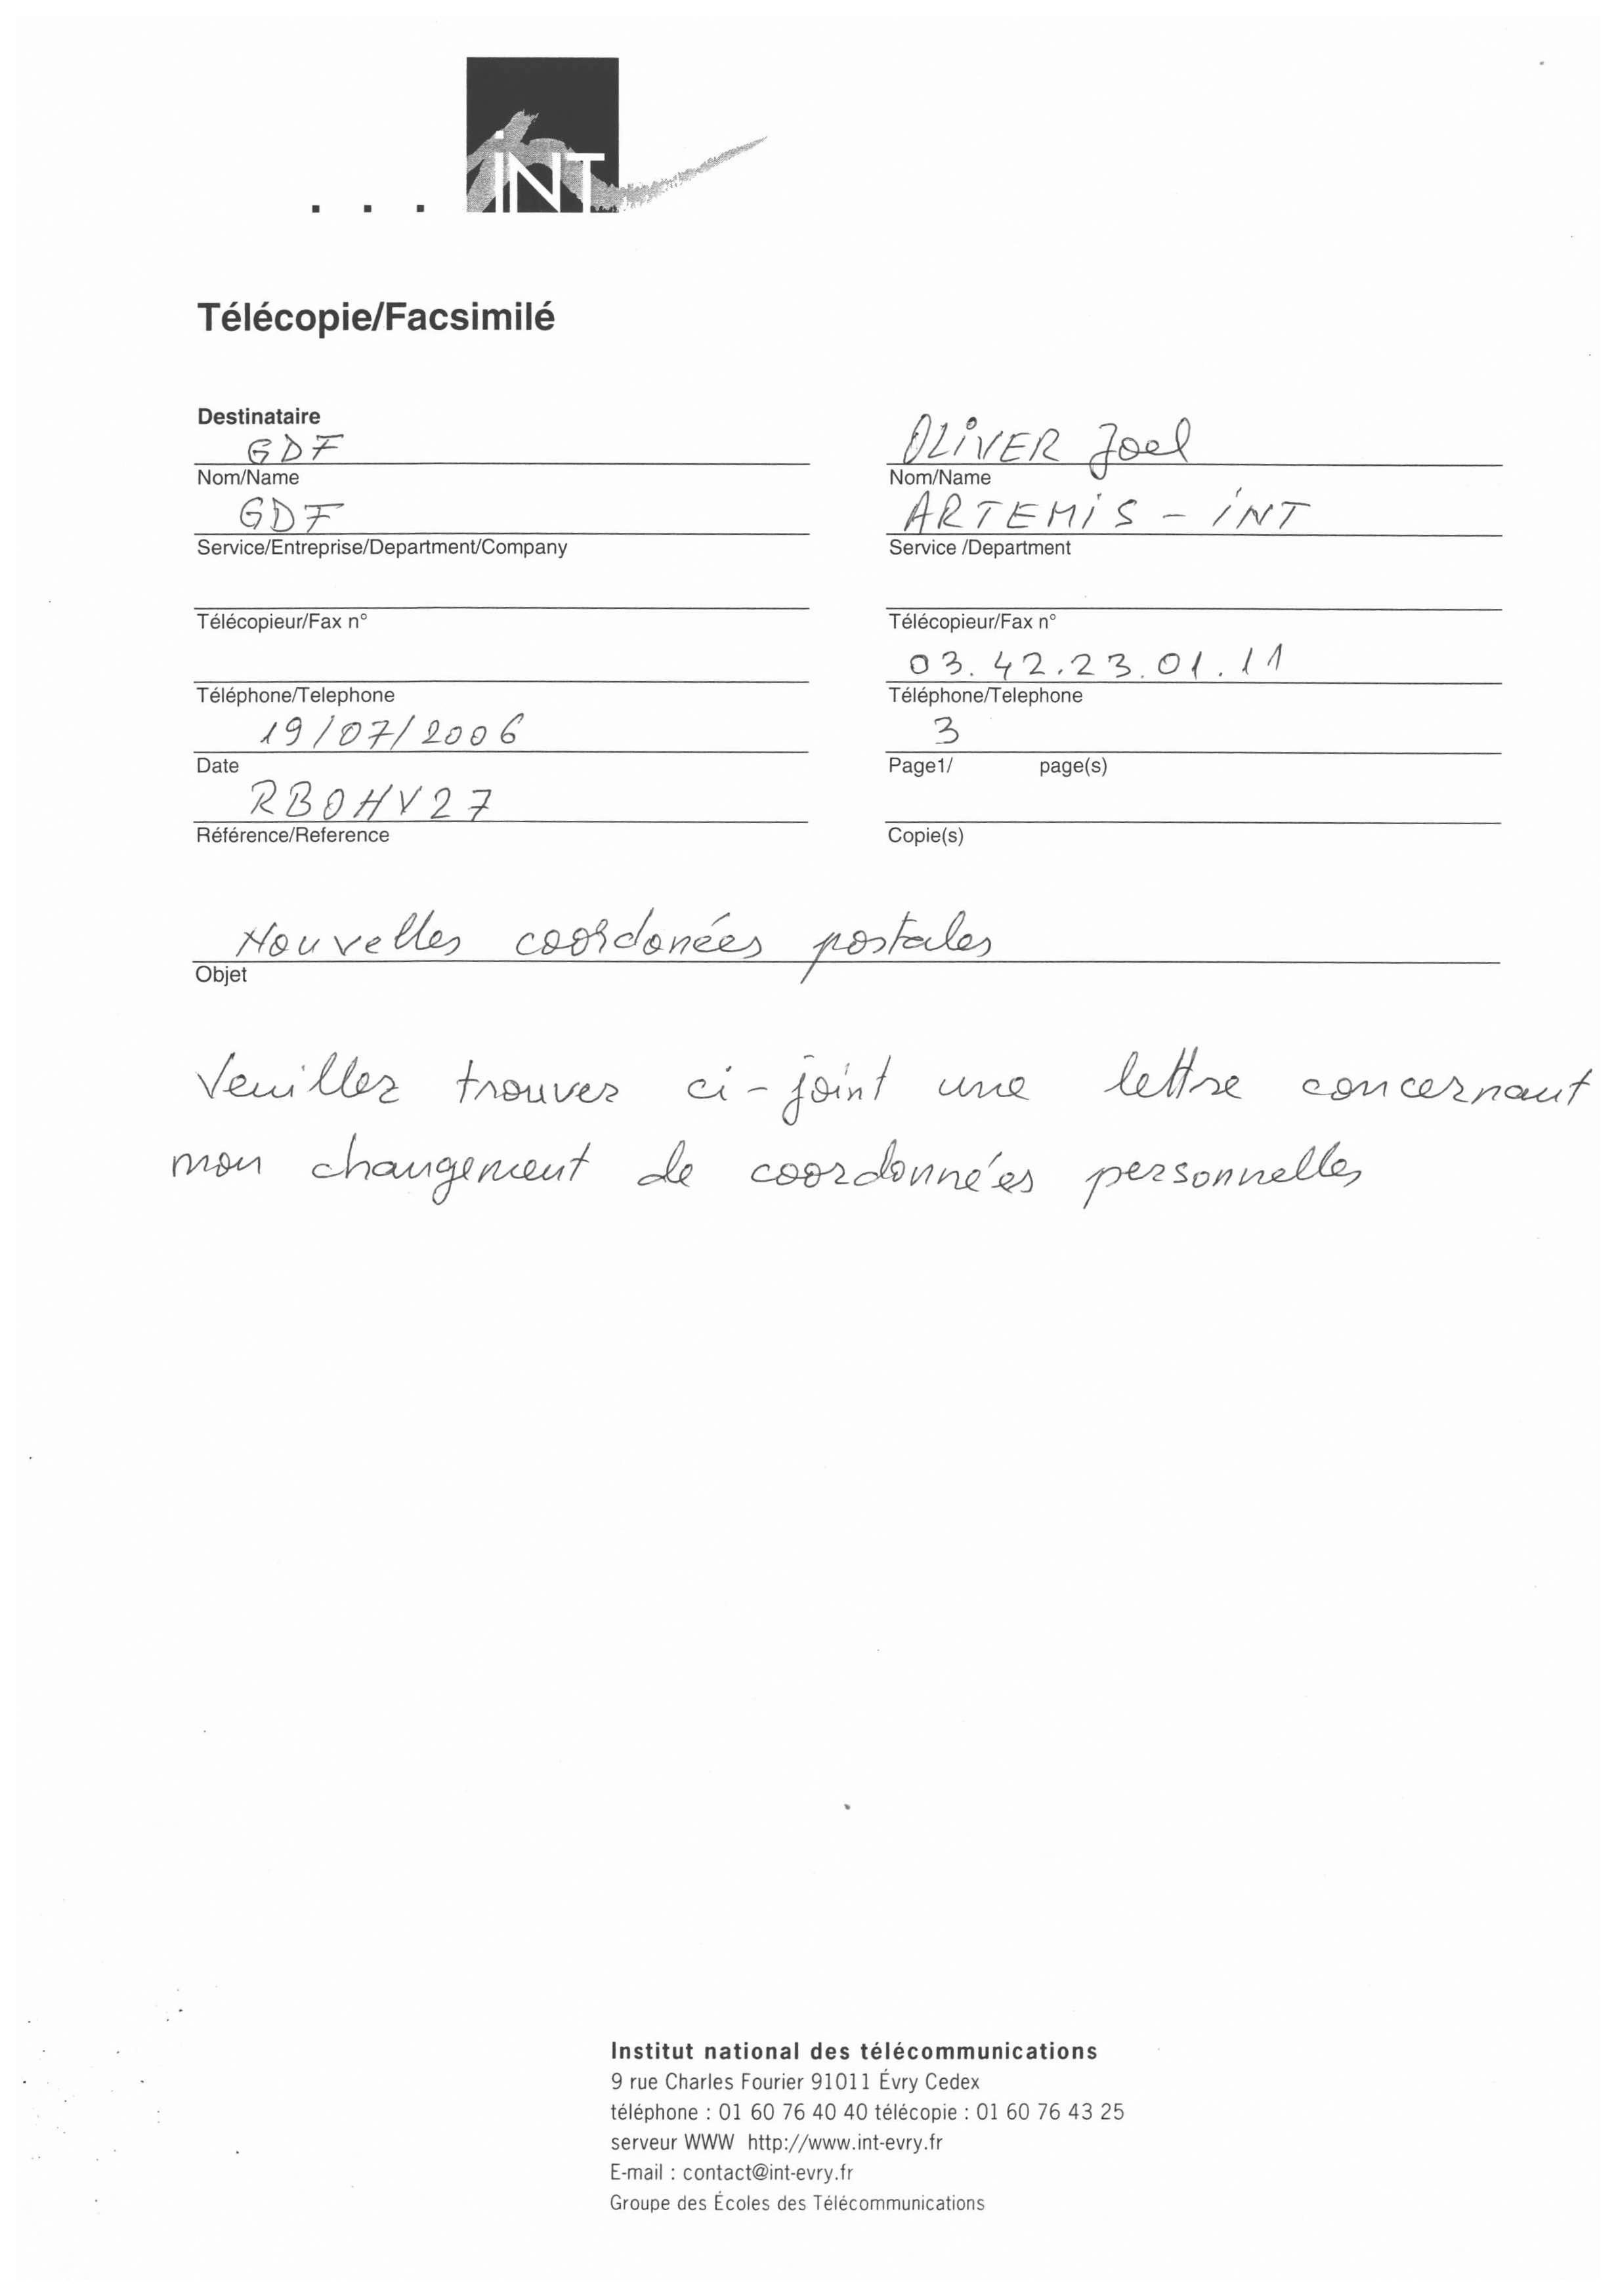 iNT
Télécopie/Facsimilé
Destinataire
GDF
Nom/Name
GDF
Service/Entreprise/Department/Company
Télécopieur/Fax n°
Téléphone/Telephone
19/07/2006
Date
RBOHV27
Référence/Reference
OLiVER Joel
Nom/Name
ARTEMiS - iNT
Service /Department
Télécopieur/Fax n°
03.42.23.01.11
Téléphone/Telephone
3
Page1/ page(s)
Copie(s)
Nouvelles coordonées postales
Objet
Veuillez trouver ci-joint une lettre concernant
mon changement de coordonnées personnelles
Institut national des télécommunications
9 rue Charles Fourier 91011 Évry Cedex
téléphone : 01 60 76 40 40 télécopie : 01 60 76 43 25
serveur WWW http://www.int-evry.fr
E-mail : contact@int-evry.fr
Groupe des Écoles des Télécommunications